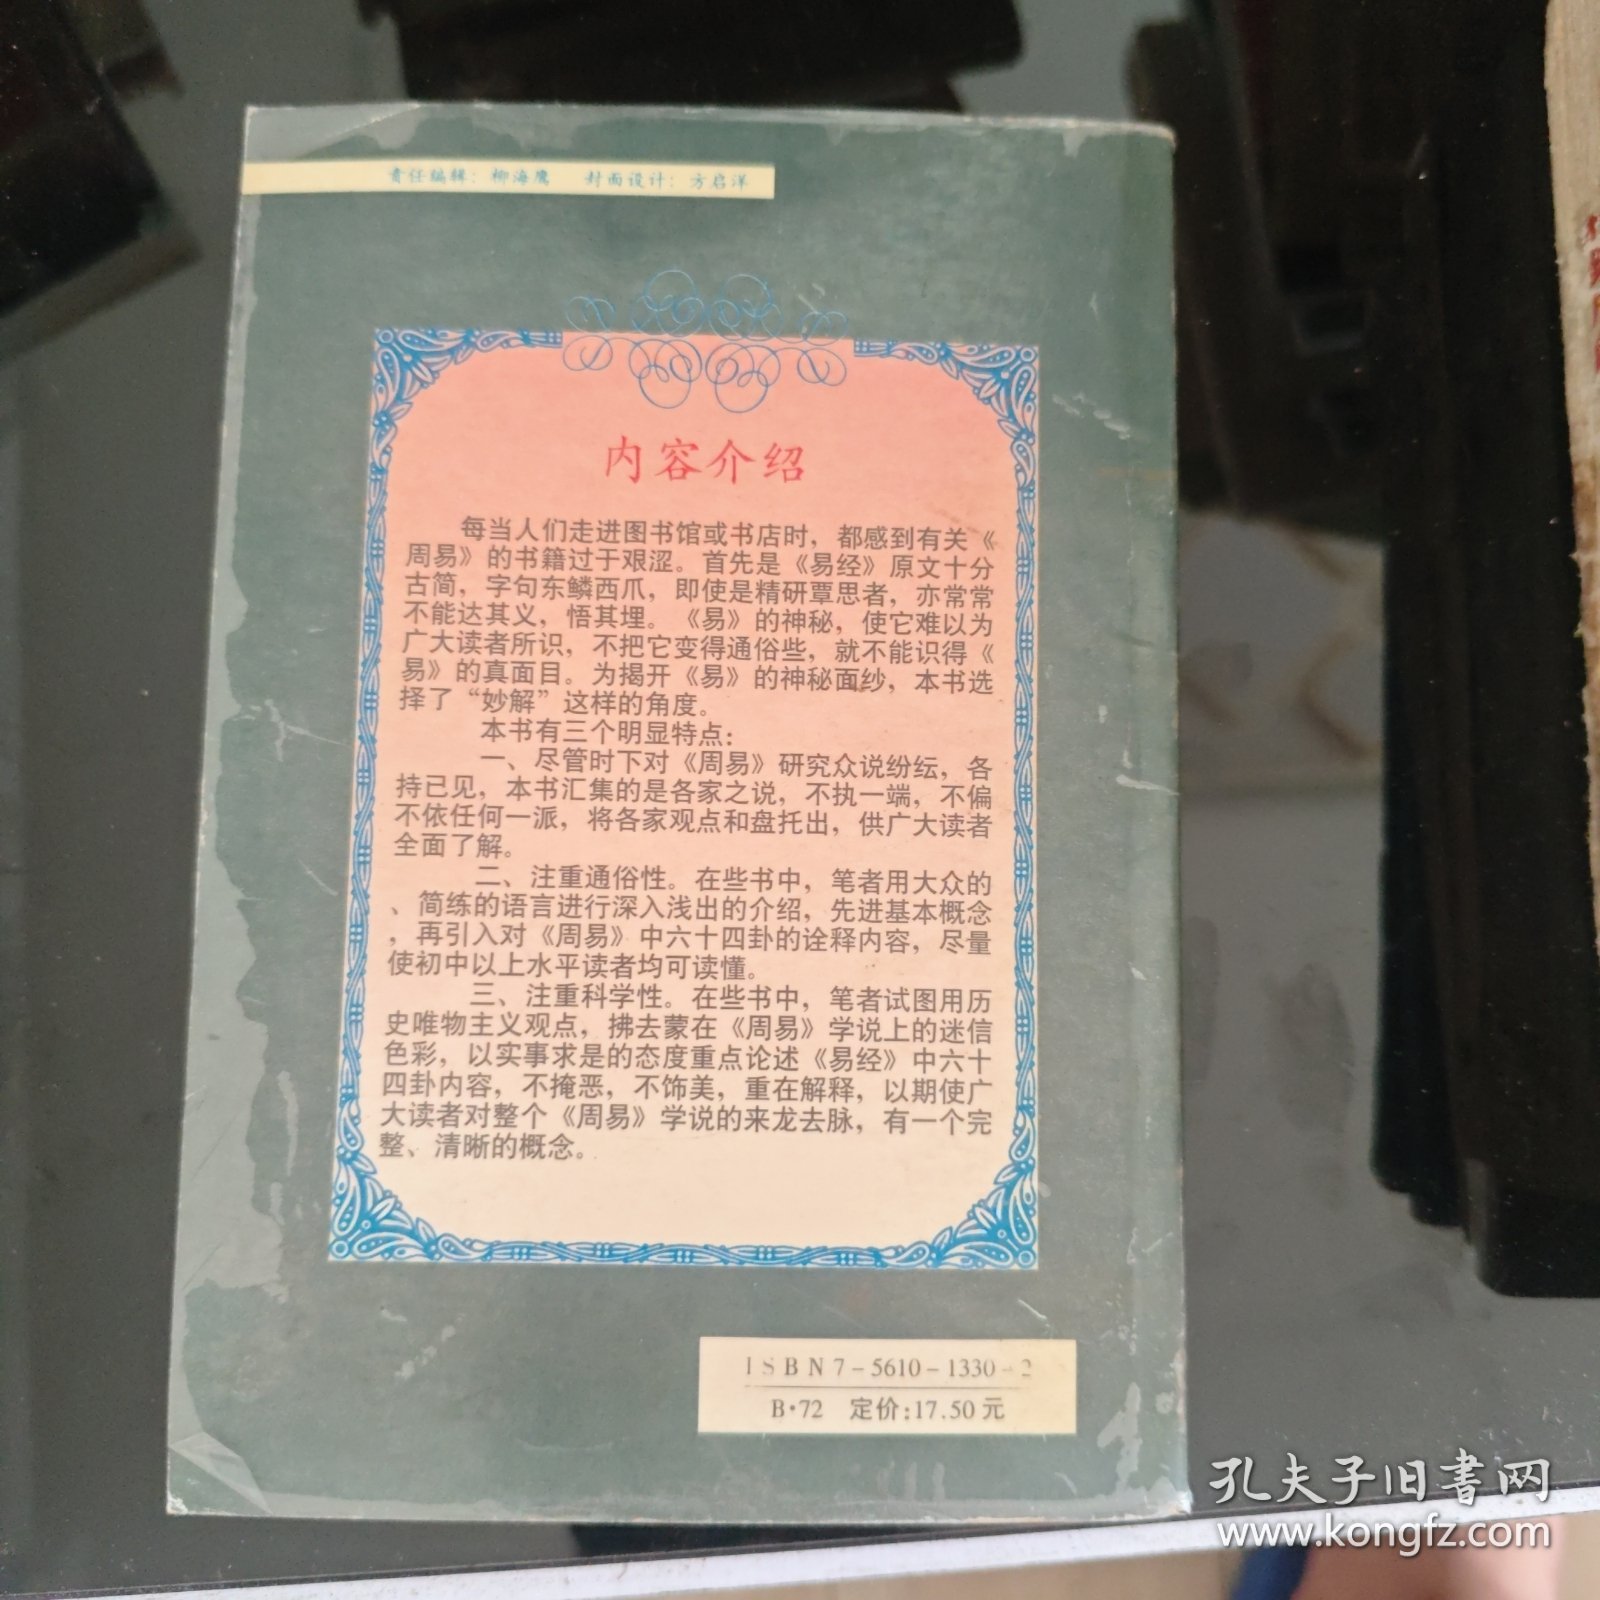 责任编辑：柳海鹰 封面设计：方启洋
内容介绍
每当人们走进图书馆或书店时，都感到有关《
周易》的书籍过于艰涩。首先是《易经》原文十分
古简，字句东鳞西爪，即使是精研覃思者，亦常常
不能达其义，悟其埋。《易》的神秘，使它难以为
广大读者所识，不把它变得通俗些，就不能识得《
易》的真面目。为揭开《易》的神秘面纱，本书选
择了“妙解”这样的角度。
本书有三个明显特点：
一、尽管时下对《周易》研究众说纷纭，各
持已见，本书汇集的是各家之说，不执一端，不偏
不依任何一派，将各家观点和盘托出，供广大读者
全面了解。
二、注重通俗性。在些书中，笔者用大众的
、简练的语言进行深入浅出的介绍，先进基本概念
，再引入对《周易》中六十四卦的诠释内容，尽量
使初中以上水平读者均可读懂。
三、注重科学性。在些书中，笔者试图用历
史唯物主义观点，拂去蒙在《周易》学说上的迷信
色彩，以实事求是的态度重点论述《易经》中六十
四卦内容，不掩恶，不饰美，重在解释，以期使广
大读者对整个《周易》学说的来龙去脉，有一个完
整、清晰的概念。
ISBN 7-5610-1330-2
B·72 定价:17.50元
孔夫子旧書网
www.kongfz.com